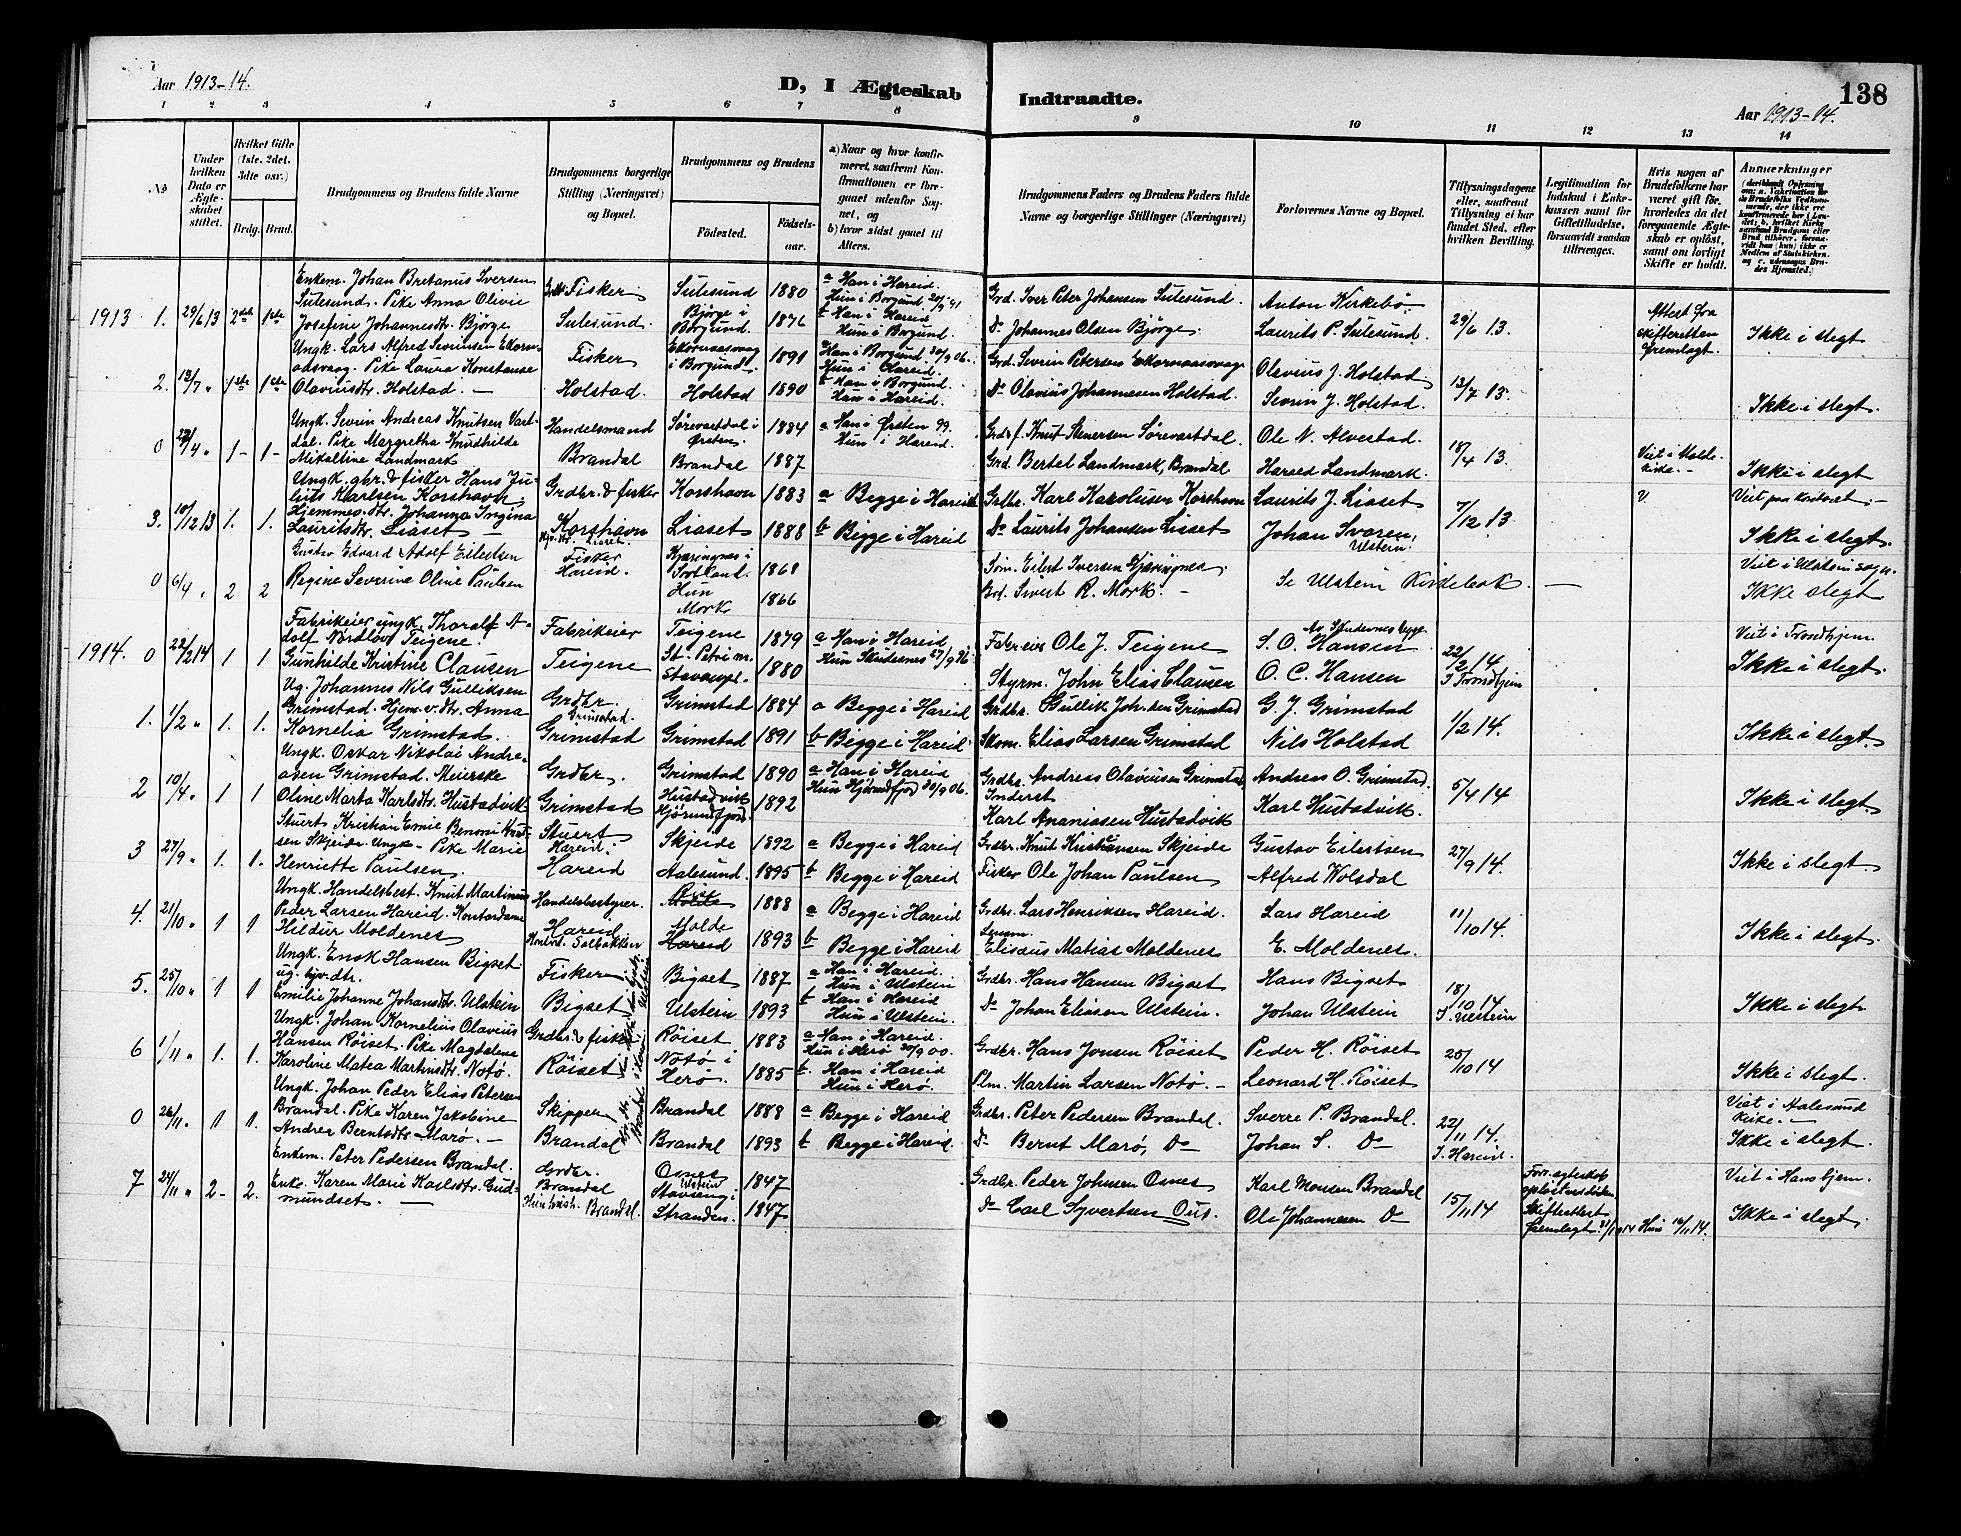 Aar 1913-14.
D, I Ægteskab Indtraadte.
138
Aar 1913-14.
1 2 3 4 5 6 7 8 9 10 11 12 13 14
No
Under hvilken Dato er Ægteskabet stiftet.
Hvilket Gifte (1ste, 2det, 3die osv.)
Brdg. Brud.
Brudgommens og Brudens fulde Navne
Brudgommens borgerlige Stilling (Næringsvei) og Bopæl.
Brudgommens og Brudens
Fødested.
Fødsels-aar.
a) Naar og hvor konfirmeret, saafremt Konfirmationen er foregaaet udenfor Sognet, og
b) hvor sidst gaaet til Alters.
Brudgommens Faders og Brudens Faders fulde Navne og borgerlige Stillinger (Næringsvei)
Forlovernes Navne og Bopæl.
Tillysningsdagene eller, saafremt Tillysning ei har fundet Sted, efter hvilken Bevilling.
Legitimation for Indskud i Enkekassen samt for Giftetilladelse, forsaavidt saadan tiltrænges.
Hvis nogen af Brudefolkene har været gift før, hvorledes da det foregaaende Ægteskab er opløst, samt om lovligt Skifte er holdt.
Anmærkninger
1913 1. 29/6 13 2det 1ste
Enkem. Johan Bretanus Iversen
Sulesund. Pike Anna Olivie
Josefine Johannesdtr. Bjørge
Fisker
Sulesund.
Sulesund 1880
Bjørge i Borgund. 1876
a Han i Hareid
Hun i Borgund
b Han i Hareid
Hun i Borgund.
Grd. Iver Peter Johansen Sulesund.
Do Johannes Olsen Bjørge.
Anton Kirkebø
Laurits P. Sulesund.
29/6 13.
Attest fra skifteretten fremlagt.
Ikke i slegt
2. 13/7 " 1ste 1ste
Ungk. Lars Alfred Severinsen Ekorn-
adsvaag. Pike Laura Konstanse
Olaviusdtr. Holstad. —
Fisker
Holstad.
i Borgund. 1891
Holstad 1890
Han i Borgund 30/9 06.
Hun i Hareid.
b Han i Borgund.
Hun i Hareid.
Grd. Severin Petersen Ekornaasvaag
Do Olavius Johannesen Holstad.
Olavius J. Holstad
Severin J. Holstad.
13/7 13.
Ikke i slegt.
0 1- 1-
Ungk. Sevrin Andreas Knutsen Vart-
dal. Pike Margrethe Knudhilde
Mikaline Landmark
Handelsmand
Brandal
Sørevartdal i Ørsten. 1884
Brandal 1887
a Han i Ørsten 99.
Hun i Hareid.
Grdbrf. Knut Steversen Sørevartdal.
Grd. Bertel Landmark, Brandal
Ole N. Alvestad.
Harald Landmark.
18/4 13.
Viet i Molde kirke. —
Ikke i slegt
3. 10/12 13 1. 1.
Ungk. gbr. & fisker Hans Ju-
lius Karlsen Korshavn,
Hjemmev. dtr. Johanna Ingina
Lauritsdtr. Liaset —
Grdbr. & fisker
Korshavn
Korshavn 1883
Liaset 1888
a Begge i Hareid
b Begge i Hareid
Grdbr. Karl Karolusen Korshavn
Do Laurits Johansen Liaset
Laurits J. Liaset
Johan Svoren,
Ulstein.
7/12 13
Viet paa Kontoret. —
Ikke i slegt.
0 6/4 " 2 2
Gustav Edvard Adolf Eilertsen
Regine Severine Oline Paulsen
Fisker
Hareid.
Kjæringnes i Sortland. 1868
Hun Mork 1866
Søm. Eilert Iversen Kjæringnes.
Brd. Sivert R. Mork. —
Se Ulstein Kirkebok. —
Viet i Ulstein sogn.
Ikke slegt
1914. 0 22/2 14 1 1
Fabrikeier ungk. Thoralf A-
dolf Nordlov Teigene.
Gunhilde Kristine Clausen
Fabrikeier
Teigene
Teigene 1879
St. Petri m. Stavanger. 1880
a Han i Hareid
Hun Skudesnes 27/9 96
Fabreier Ole J. Teigene
Styrm. John Elias Clausen
S. O. Hansen
O. C. Hansen
22/2 14
I Trondhjem
Viet i Trondhjem.
Ikke i slegt
1. 1/2 " 1. 1.
Ug. Johannes Nils Gulliksen
Grimstad. Hjem. v. dtr. Anna
Kornelia Grimstad.
Grdbr.
Grimstad.
Grimstad
Grimstad 1884
Grimstad 1891
a Begge i Hareid
b Begge i Hareid
Grdbr. Gullik Joh.sen Grimstad
Skom. Elias Larsen Grimstad
G. J. Grimstad
Nils Holstad
1/2 14.
Ikke i slegt.
2 10/4 " 1 1
Ungk. Oskar Nikolai Andre-
asen Grimstad. Meierske
Oline Marta Karlsdtr. Hustadvik
Grdbr.
Grimstad
Grimstad 1890
Hustadvik Hjørundfjord. 1892
a Han i Hareid
Hun Hjørundfjord 30/9 06.
Grdbr. Andreas Olaviusen Grimstad
Inderst
Karl Ananiassen Hustadvik
Andreas O. Grimstad.
Karl Hustadvik.
5/4 14
Ikke i slegt.
3 27/9 " 1. 1.
Stuert Kristian Emie Benoni Knut-
sen Skjeide. Ungk. Pike Marie
Henriette Paulsen.
Stuert
Hareid.
Hareid
Skjeide 1892
Aalesund. 1895
a Begge i Hareid
b Begge i Hareid
Grdbr. Knut Kristiansen Skjeide
Fisker Ole Johan Paulsen
Gustav Eilertsen
Alfred Volsdal
27/9 14.
Ikke i slegt.
4. 21/10 " 1 1
Ungk. Handelsbest. Knut Martinus
Peder Larsen Hareid. Kontordame
Hildur Moldenes
Handelsbestyrer.
Hareid
Rise 1888
Molde
Hareid 1893
a Begge i Hareid
b Begge i Hareid
Grdbr. Lars Henriksen Hareid.
Lensm.
Elisaus Matias Moldenes
Lars Hareid
E. Moldenes.
11/10 14.
Ikke i slegt.
5. 25/10 " 1 1
Ungk. Ensk Hansen Bigset
ug. hjv. dtr.
Emilie Johanne Johansdtr. Ulstein
Fisker
Bigset
Bigset 1887
Ulstein 1893
a Han i Hareid.
Hun i Ulstein
b Han i Hareid
Hun i Ulstein.
Grdbr. Hans Hansen Bigset
Do Johan Eliasen Ulstein.
Hans Bigset
Johan Ulstein
18/10 14
I. Ulstein
Ikke i slegt
6 1/11 " 1. 1.
Ungk. Johan Kornelius Olavius
Hansen Røiset. Pike Magdalene
Karoline Matea Martinsdtr. Notø.
Grdbr. & fisker
Røiset
Røiset 1883
Notø i Herø. 1885
a Han i Hareid.
Hun i Herø 30/9 00.
b. Han i Hareid
Hun i Herø.
Grdbr. Hans Jonsen Røiset
Plm. Martin Larsen Notø. —
Peder H. Røiset
Leonard H. Røiset
25/10 14
Ikke i slegt.
0 26/11 " 1 1.
Ungk. Johan Peder Elias Petersen
Brandal. Pike Karen Jakobine
Andrea Berntsdtr. Marø. —
Skipper
Brandal
Brandal 1888
Brandal 1893
a Begge i Hareid
b Begge i Hareid.
Grdbr. Peter Pedersen Brandal.
Do Bernt Marø, Do
Sverre P. Brandal.
Johan S. Do
22/11 14.
I. Hareid.
Viet i Aalesund
Kirke. —
Ikke i slegt.
7 24/11 " 2- 2.
Enkem. Peter Pedersen Brandal.
Enke Karen Marie Karlsdtr. Gud-
mundset. —
Grdbr.
Brandal
Brandal.
Osnes Ulstein 1847
Stavseng i Stranden. 1847
Grdbr. Peder Johnsen Osnes
Do Carl Syvertsen Ous.
Karl Monsen Brandal
Ole Johannesen Do
15/11 14
Forr. egteskab
Skifteattest
fremlagt.
Hun 16/11 14.
Viet i Hans hjem.
Ikke i slegt.